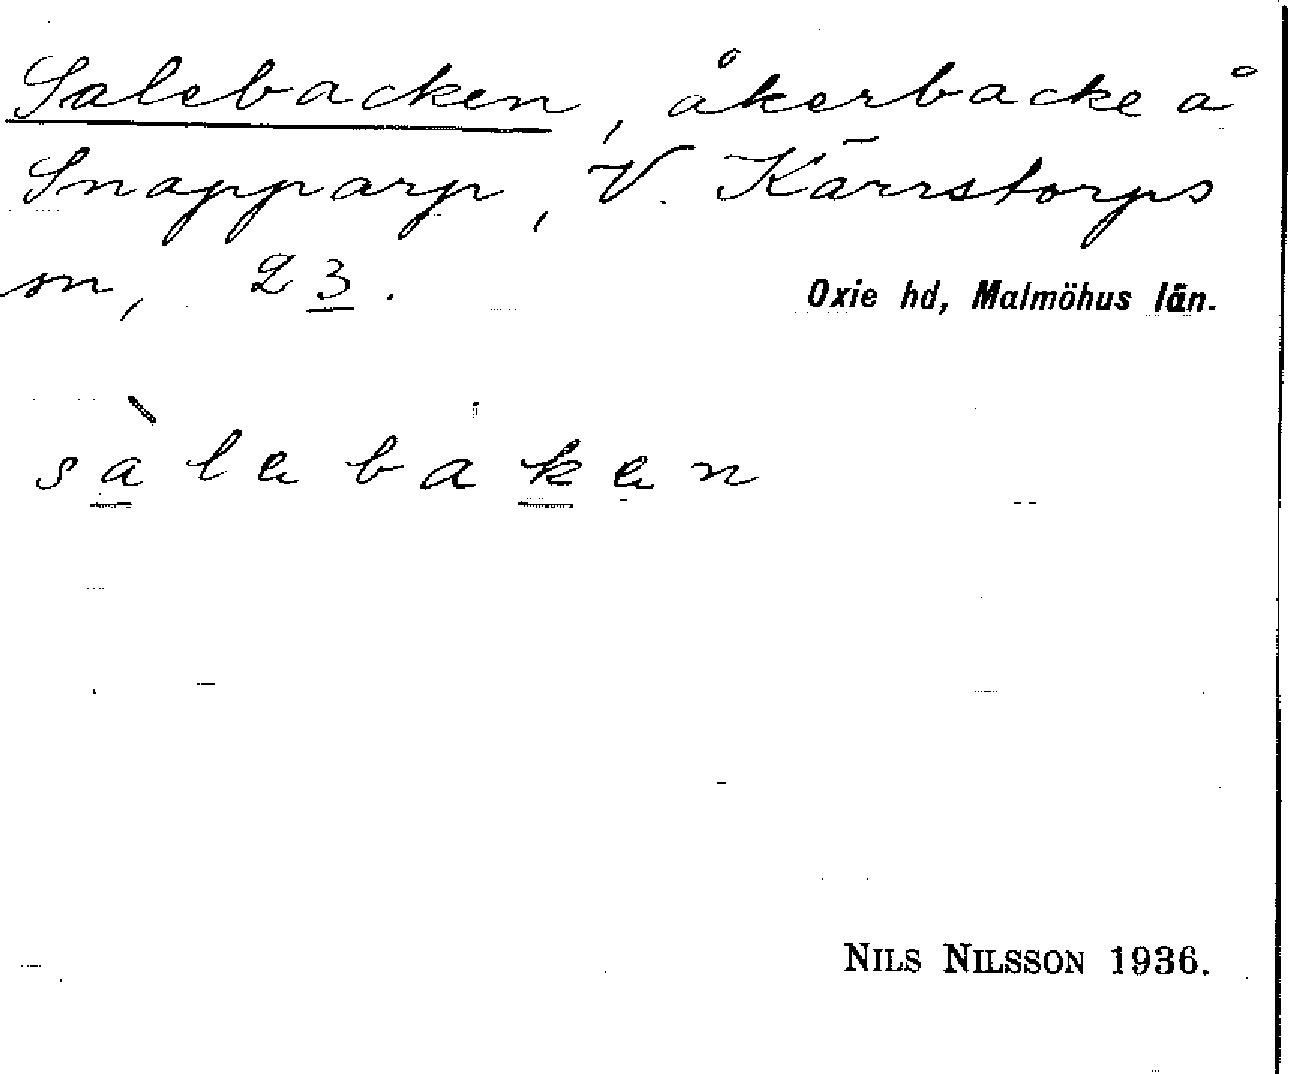 Salebacken, åkerbacke å
Snapparp, V. Kärrstorps
sn, L 3.
Oxie hd, Malmöhus län.
sàlebaken
NILS NILSSON 1936.